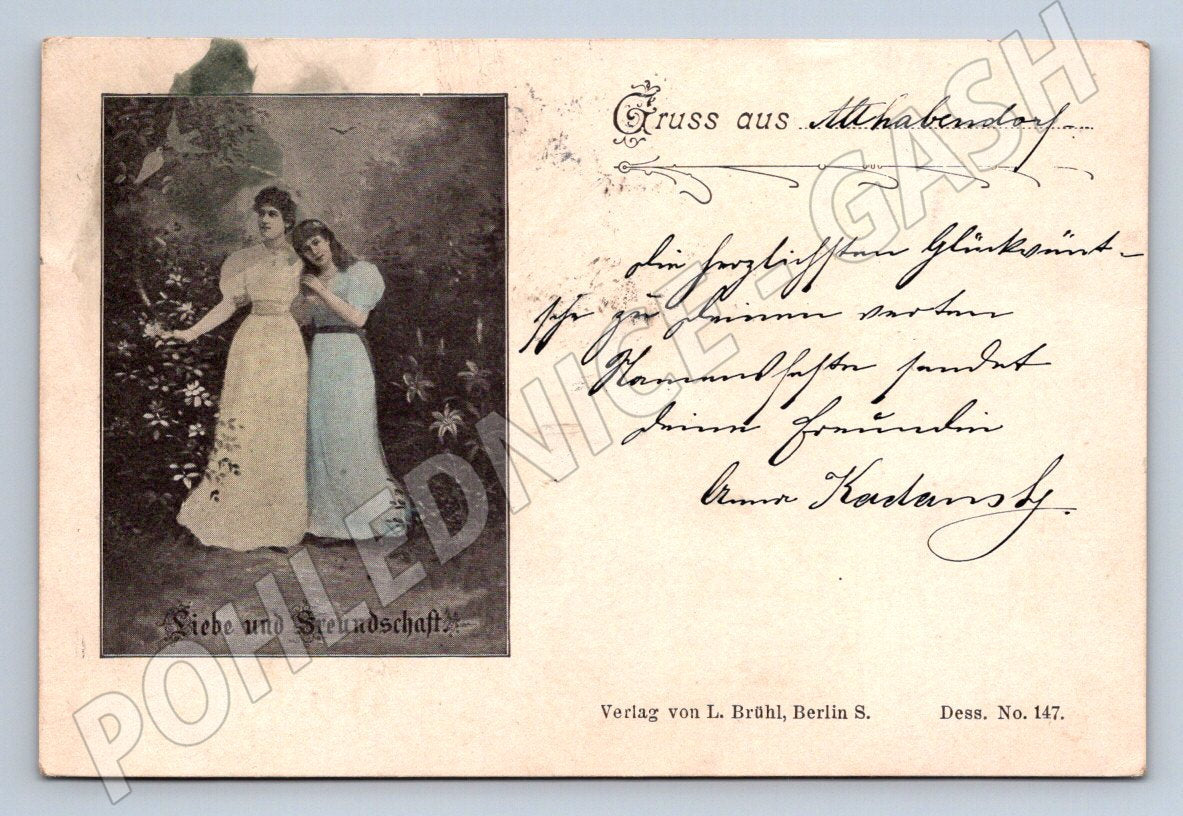 Gruss aus Althabendorf
Die herzlichsten Glückwünt-
sche zu deinem werten
Namensfeste sendet
deine Freundin
Anna Kadansky.
Liebe und Freundschaft.
Verlag von L. Brühl, Berlin S. Dess. No. 147.
POHLEDNICE - GASH